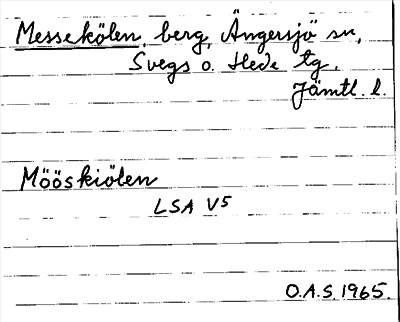 Messekölen, berg, Ängersjö sn,
Svegs o. Hede tg.
Jämtl. l.
Mööskiölen
LSA V5
O.A.S. 1965.